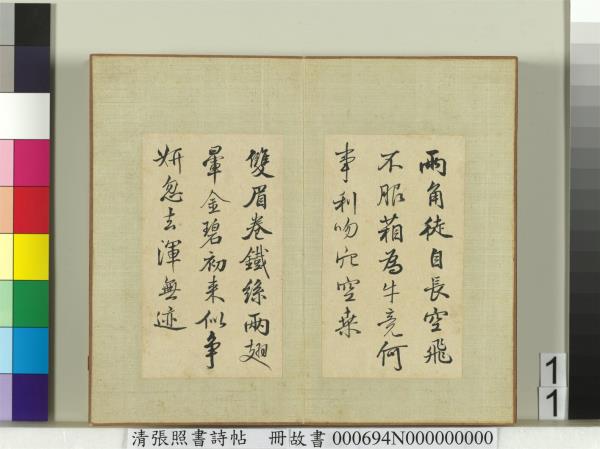 兩角徒自長空飛
不服箱為牛竟何
事利吻穴空桑
雙眉卷鐵絲兩翅
暈金碧初来似争
妍忽去渾無迹
11
清張照書詩帖 冊故書 000694N000000000